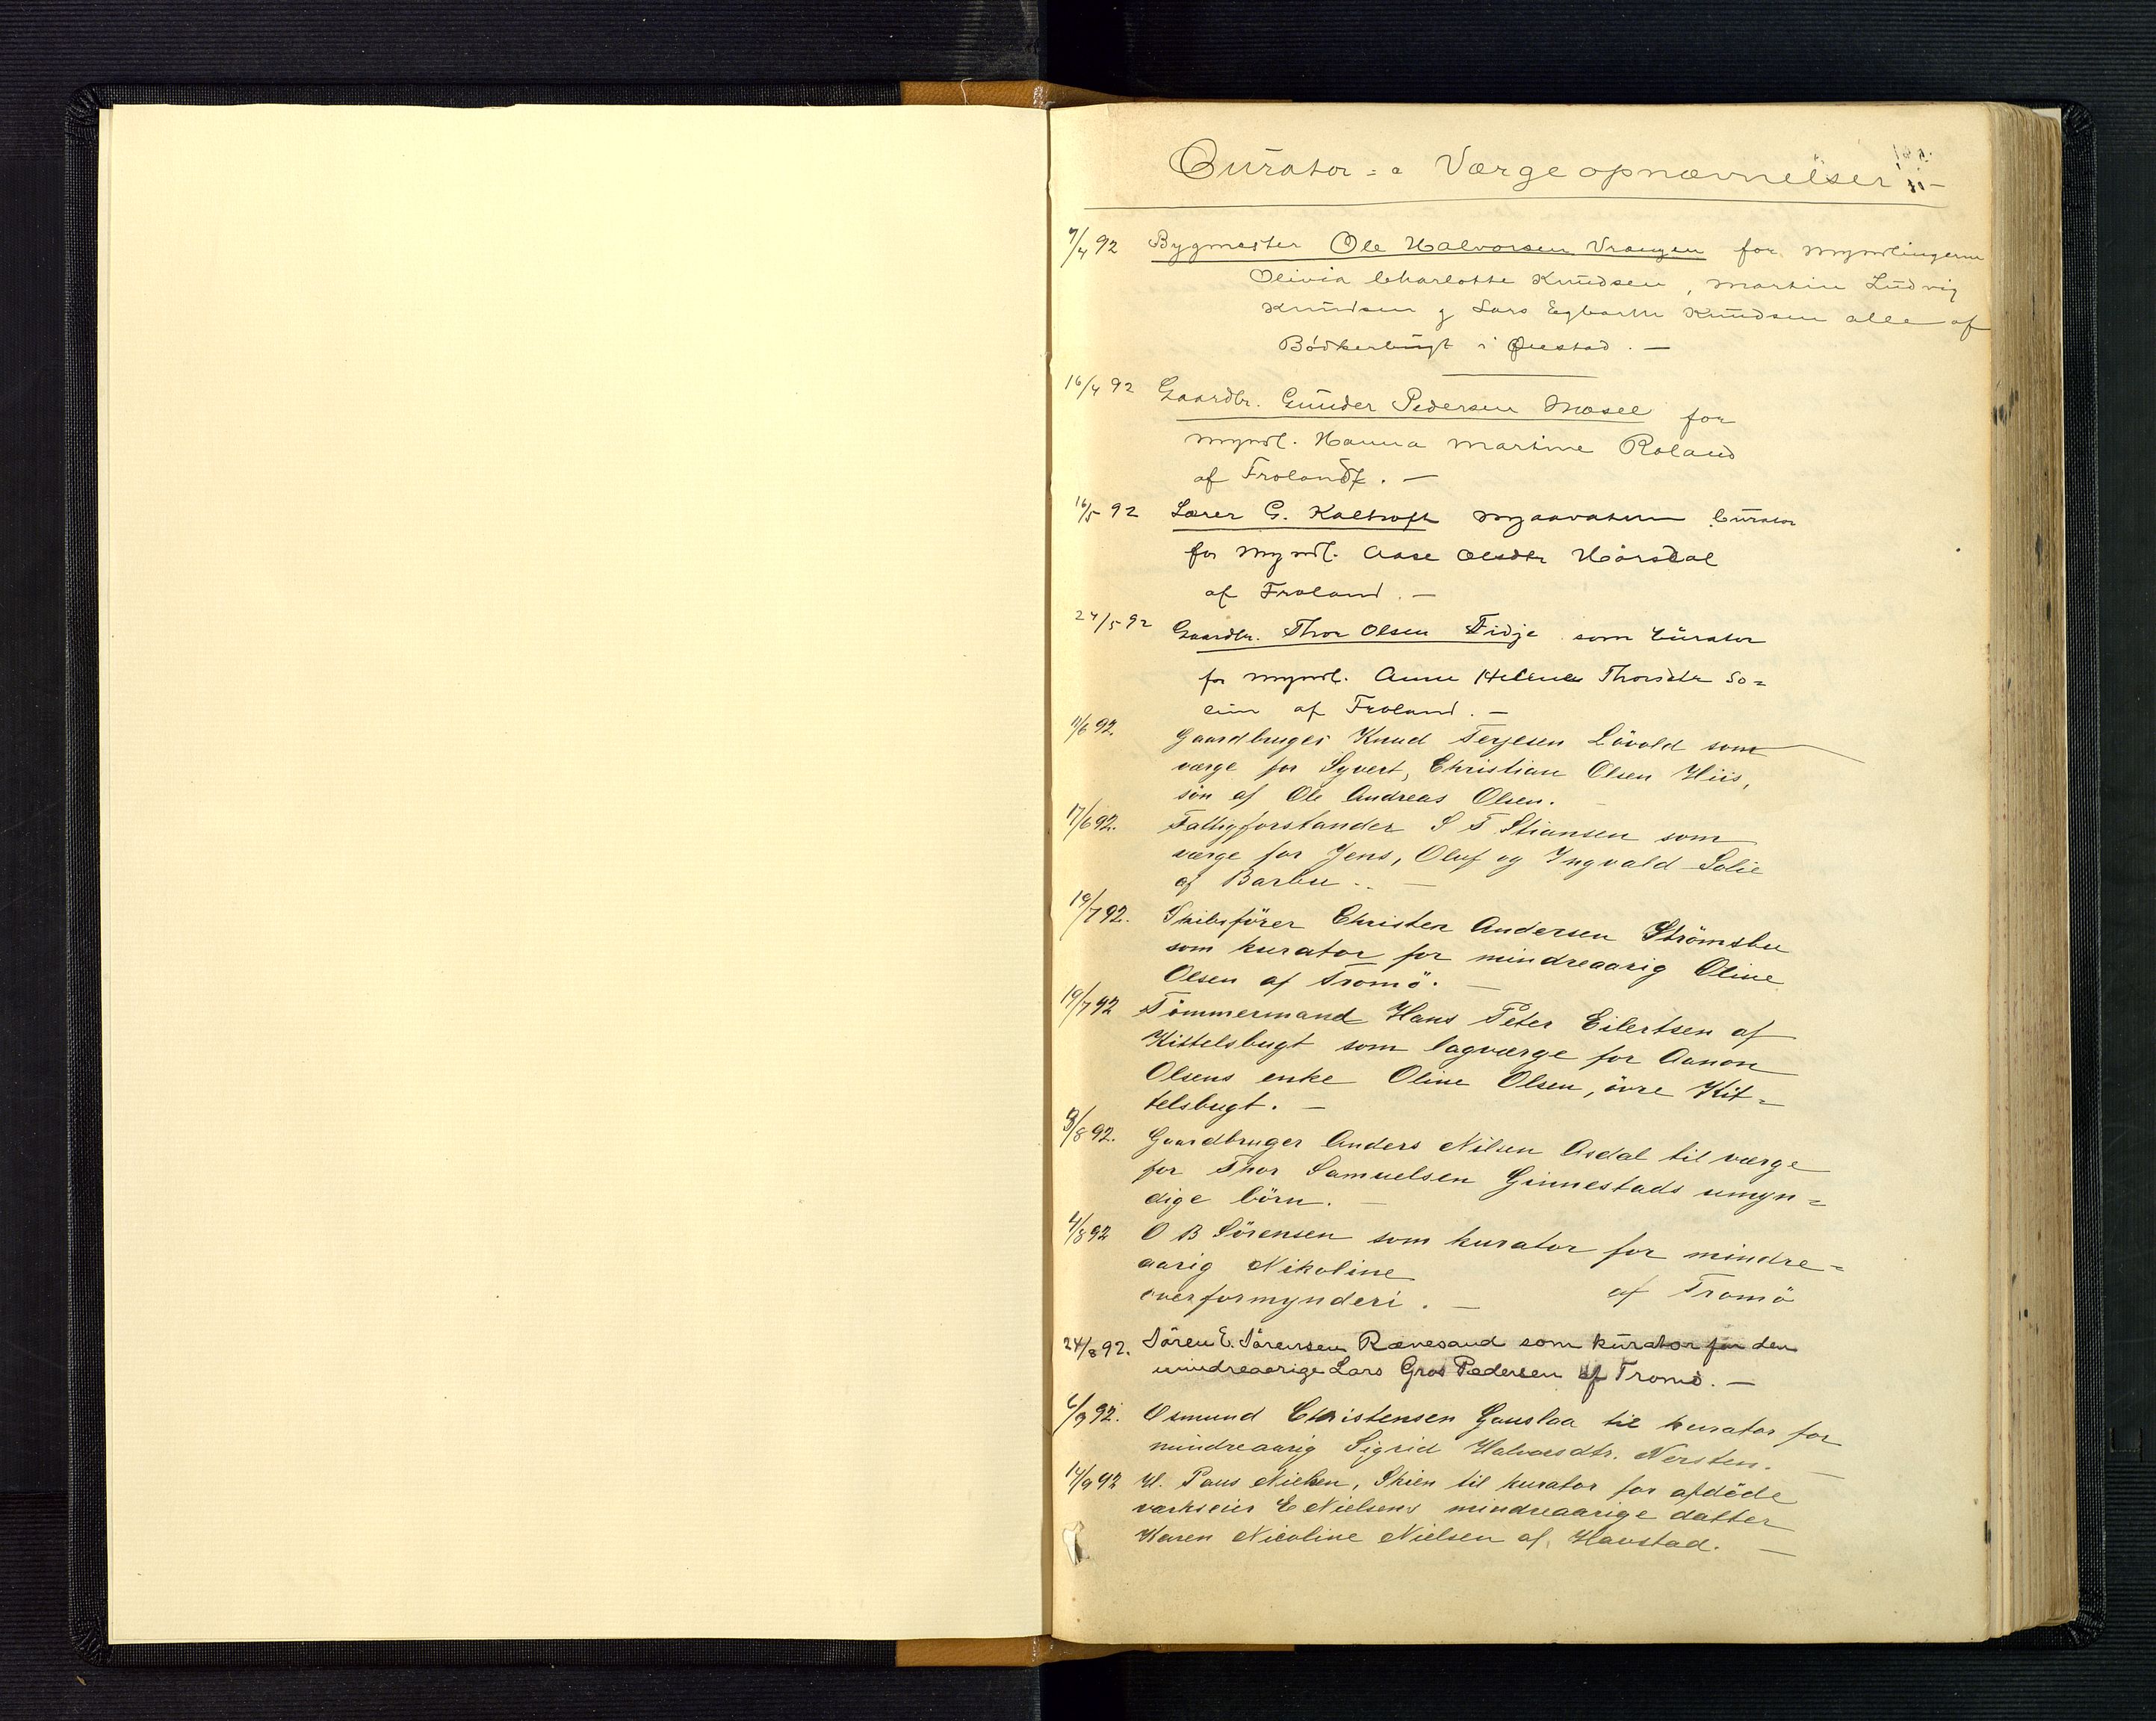 Curator = a Værgeopnævnelser. —
7/4 92 Bygmester Ole Halvorsen Vrangen for Myndlingerne
Olivia Charlotte Knudsen, Martin Ludvig
Knudsen g Lars Egbarth Knudsen alle af
Bödkerbugt i Øiestad. —
16/4 92 Gaardbr. Gunder Pedersen Mæsel for
Myndl. Hanna Martine Roland
af Froland. —
16/5 92 Lærer G. Kaltvoft Curator
for Myndl. Aase Olsdtr Hörsdal
af Froland. —
24/5 92 Gaardbr. Thor Olsen Fidje som Curator
for Myndl. Anne Helene Thorsdtr So=
lein af Froland. —
11/6 92. Gaardbruger Knud Terjesen Lövold som
værge for Syvert, Christian Olsen Hiis,
sön af Ole Andreas Olsen. —
17/6 92. Fattigforstander S T Stiansen som
værge for Jens, Oluf og Ingvald Solie
af Barbu. —
19/7 92. Skibsförer Christen Andersen Strömsbu
som kurator for mindreaarig Oline
Olsen af Tromö. —
19/7 92 Tömmermand Hans Peter Eilertsen af
Kittelsbugt som lagværge for Aanon
Olsens enke Oline Olsen, övre Kit=
telsbugt. —
3/8 92. Gaardbruger Anders Nilsen Asdal til værge
for Thor Samuelsen Ginnestads umyn=
dige börn. —
4/8 92 O B Sörensen som kurator for mindre=
aarig Nikoline af Tromö
overformynderi. —
24/8 92. Sören E. Sörensen Rævesand som kurator for den
mindreaarige Lars Gros Pedersen af Tromö. —
6/9 92. Osmund Christensen Gauslaa til kurator for
mindreaarig Sigrid Halvorsdtr. Nersten. —
14/9 92 H. Paus Nielsen, Skien til kurator for afdöde
værkseier E Nielsens mindreaarige datter
Karen Nicoline Nielsen af Havstad. —